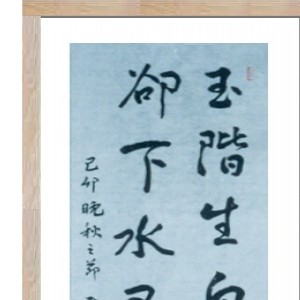 玉階生白
卻下水
己卯晚秋之節